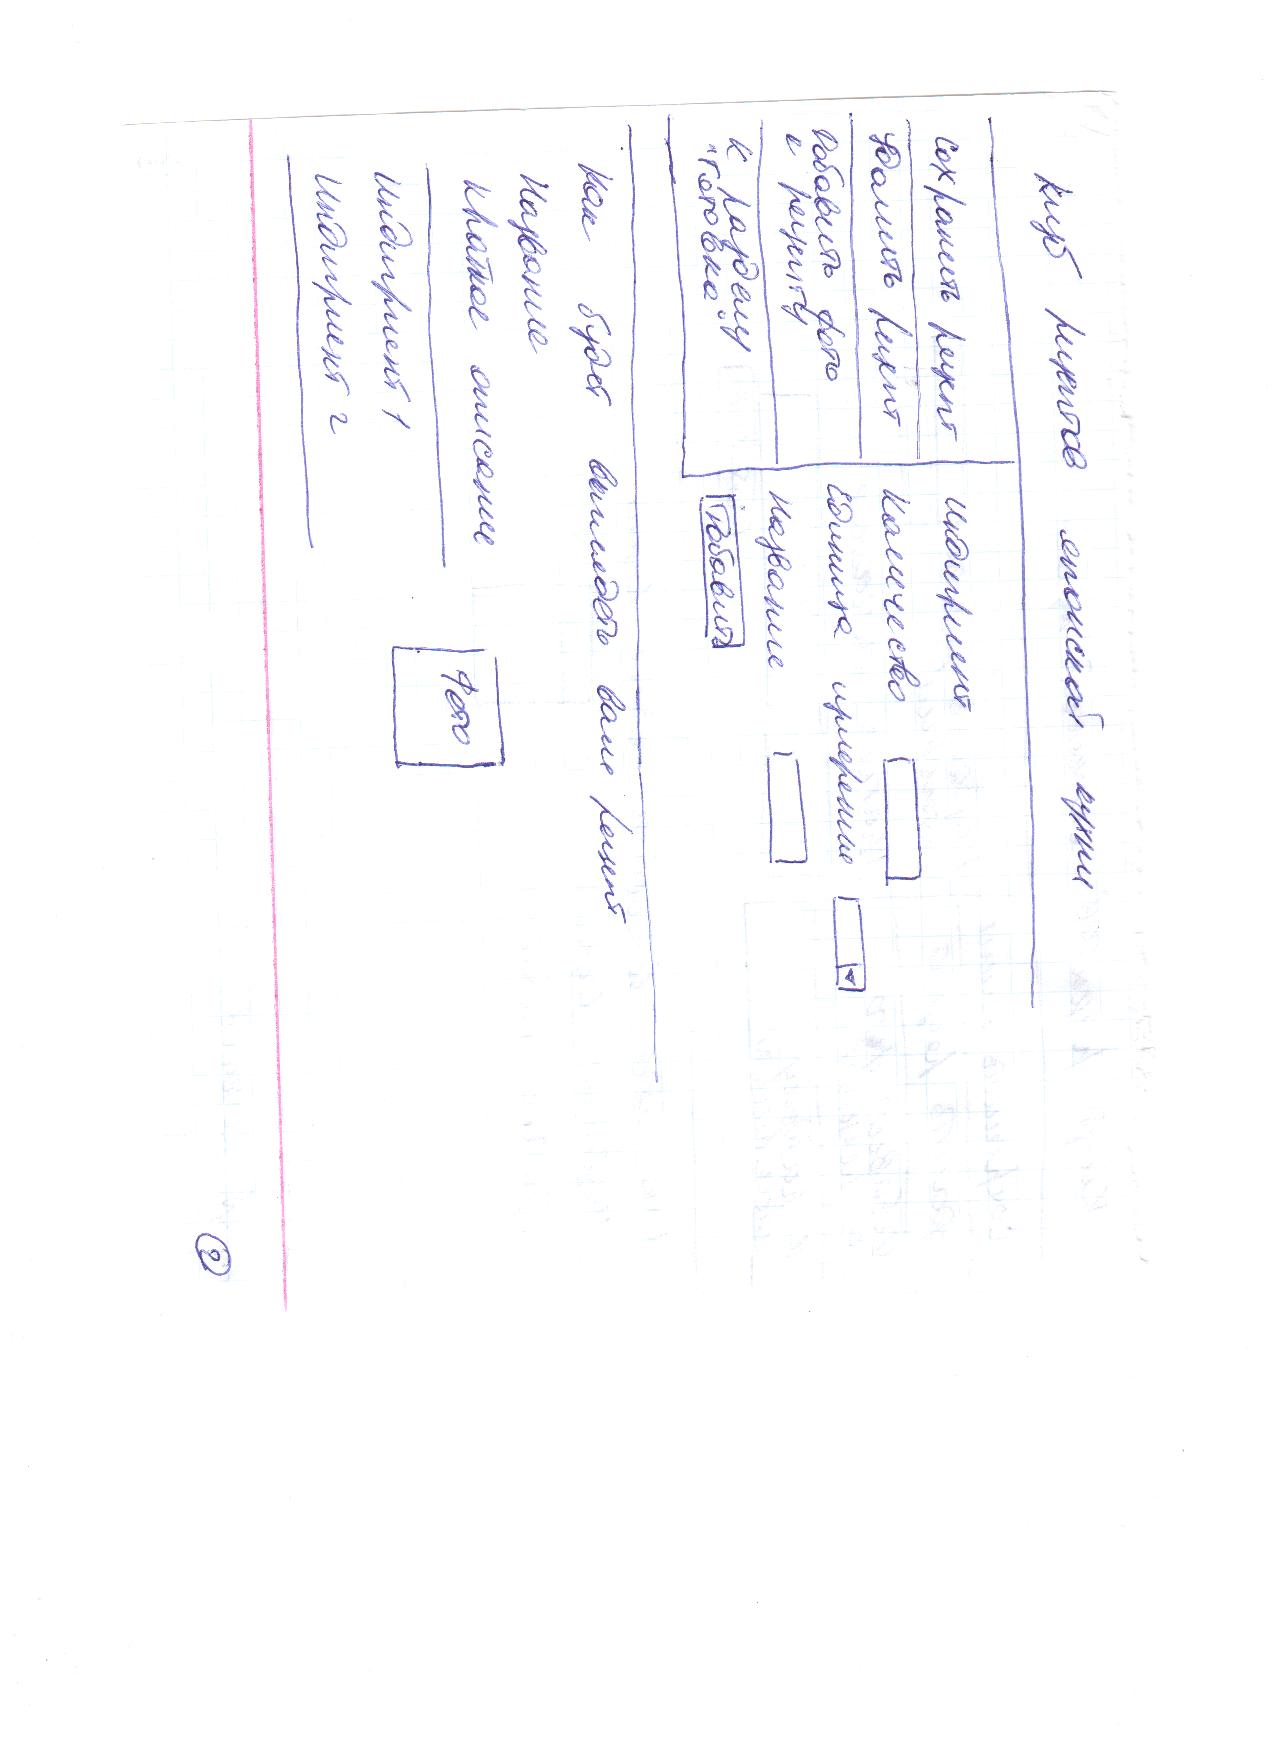 Клуб рецептов японской кухни
Сохранить рецепт
Удалить рецепт
Добавить фото
к рецепту
К разделу
"Готовка"
Индигриент
Количество
Единица измерение
Название
Добавить
Как будет выглядеть ваше рецепт
Название
Краткое описание
Индигриент 1
Индигриент 2
Фото
2